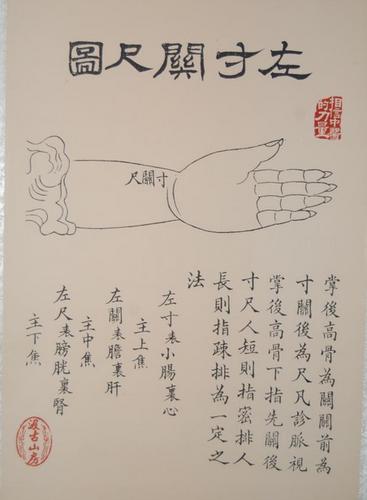 左寸關尺圖
相信中醫
的力量
寸關尺
掌後高骨為關關前為
寸關後為尺凡診脈視
掌後高骨下指先關後
寸尺人短則指密排人
長則指疎排為一定之
法
左寸表小腸裏心
主上焦
左關表膽裏肝
主中焦
左尺表膀胱裏腎
主下焦
汲古山房